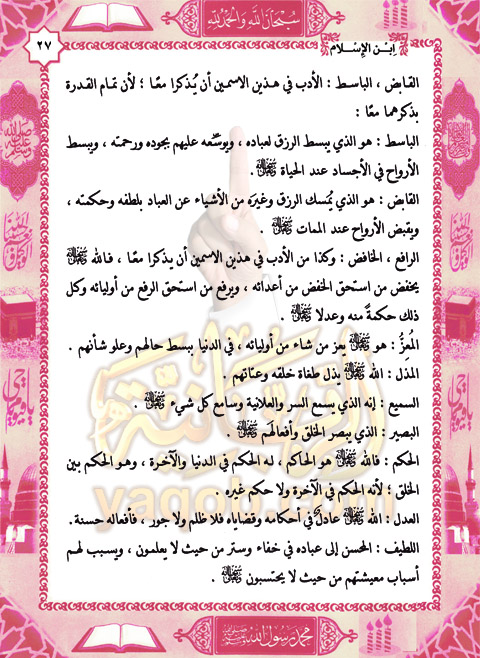 سُبْحَانَ اللَّهِ وَالْحَمْدُ لِلَّهِ
ابن الإسلام
٢٧
القابض ، الباسط : الأدب في هذين الاسمين أن يُذكرا معًا ؛ لأن تمام القدرة
بذكرهما معًا :
الباسط : هو الذي يبسط الرزق لعباده ، ويوسِّعه عليهم بجوده ورحمته ، ويبسط
الأرواح في الأجساد عند الحياة ﷻ .
القابض : هو الذي يُمسك الرزق وغيرَه من الأشياء عن العباد بلطفه وحكمته ،
ويقبض الأرواح عند الممات ﷻ .
الرافع ، الخافض : وكذا من الأدب في هذين الاسمين أن يذكرا معًا ، فالله ﷻ
يخفض من استحق الخفض من أعدائه ، ويرفع من استحق الرفع من أوليائه وكل
ذلك حكمةً منه وعدلا ﷻ .
المُعِزُّ : هو ﷻ يعز من شاء من أوليائه ، في الدنيا ببسط حالهم وعلو شأنهم .
المذل : الله ﷻ يذل طغاة خلقه وعتاتهم .
السميع : إنه الذي يسمع السر والعلانية وسامع كل شيء ﷻ .
البصير : الذي يبصر الخلق وأفعالَهم ﷻ .
الحكم : فالله ﷻ هو الحاكم ، له الحكم في الدنيا والآخرة ، وهو الحكم بين
الخلق ؛ لأنه الحكم في الآخرة ولا حكم غيره .
العدل : الله ﷻ عادلٌ في أحكامه وقضاياه فلا ظلم ولا جور ، فأفعاله حسنة .
اللطيف : المحسن إلى عباده في خفاء وستر من حيث لا يعلمون ، ويسبب لهم
أسباب معيشتهم من حيث لا يحتسبون ﷻ .
yaqob.com
محمد رسول الله ﷺ